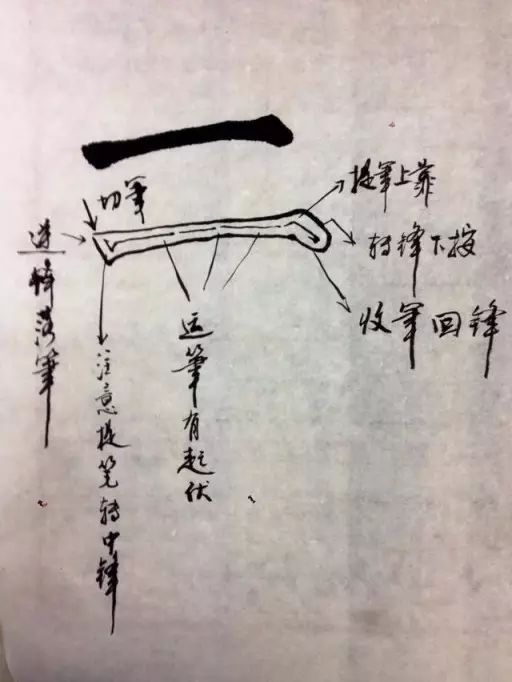 一
切筆
逆锋落筆
注意提笔转中锋
运筆有起伏
提筆上靠
转锋下按
收筆回锋